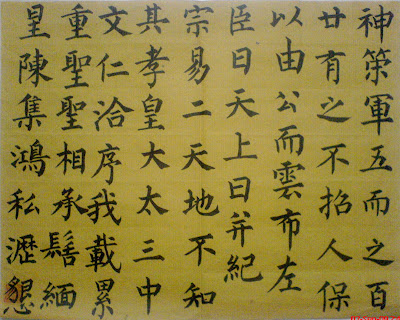 神策軍五而之百
廿有之不招人保
以由公而雲布左
臣日天上曰并紀
宗易二天地不知
其孝皇大太三中
文仁洽序我載累
重聖聖相承緬
皇陳集鴻私瀝懇